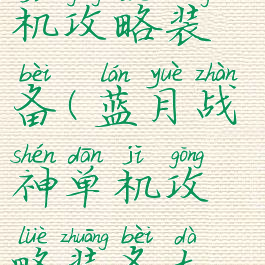 机攻略装
bèi lán yuè zhàn
备(蓝月战
shén dān jī gōng
神单机攻
lüè zhuāng bèi dà